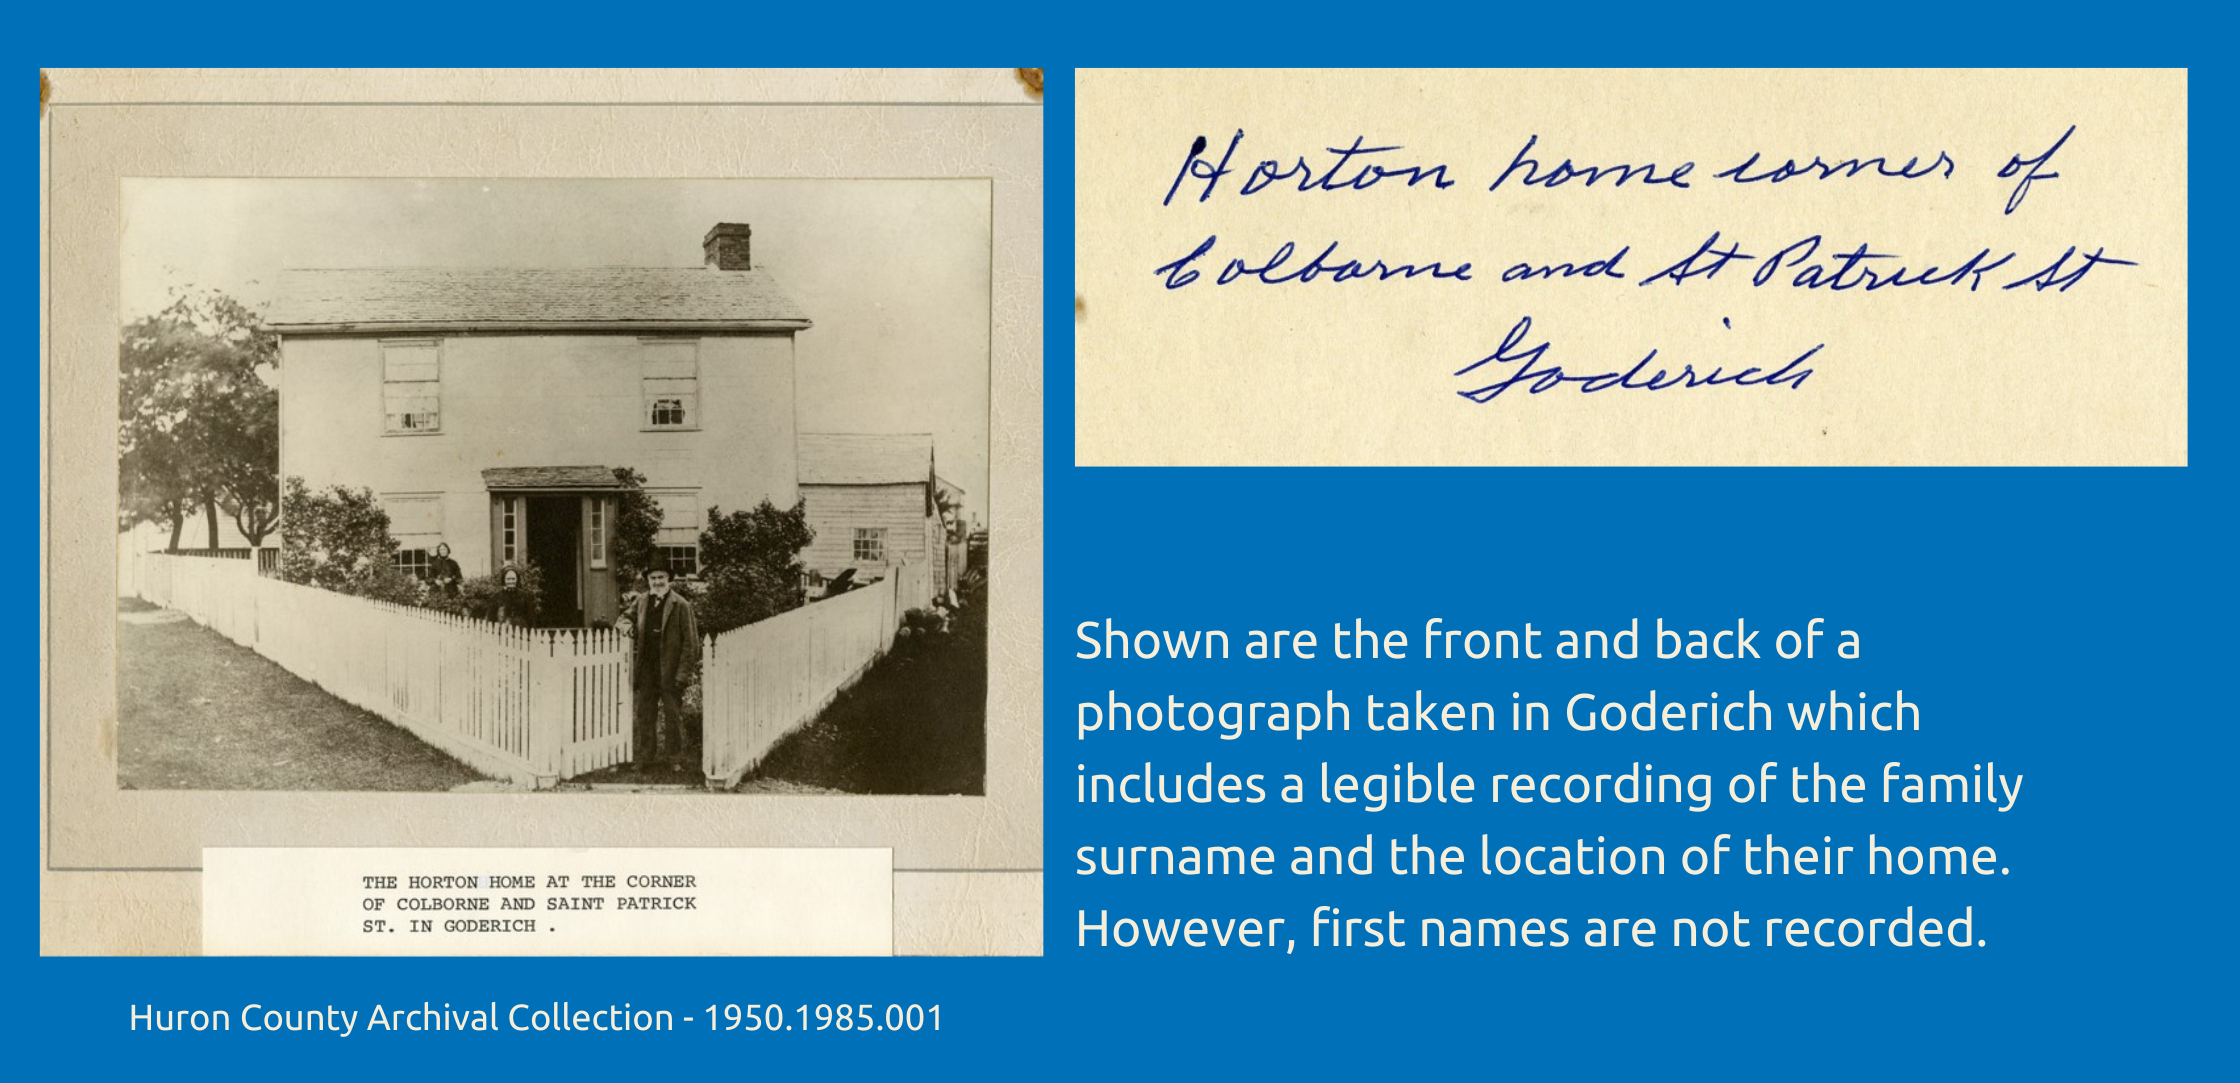 Horton home corner of
Colborne and St Patrick St
Goderich
THE HORTON HOME AT THE CORNER
OF COLBORNE AND SAINT PATRICK
ST. IN GODERICH .
Shown are the front and back of a
photograph taken in Goderich which
includes a legible recording of the family
surname and the location of their home.
However, first names are not recorded.
Huron County Archival Collection - 1950.1985.001